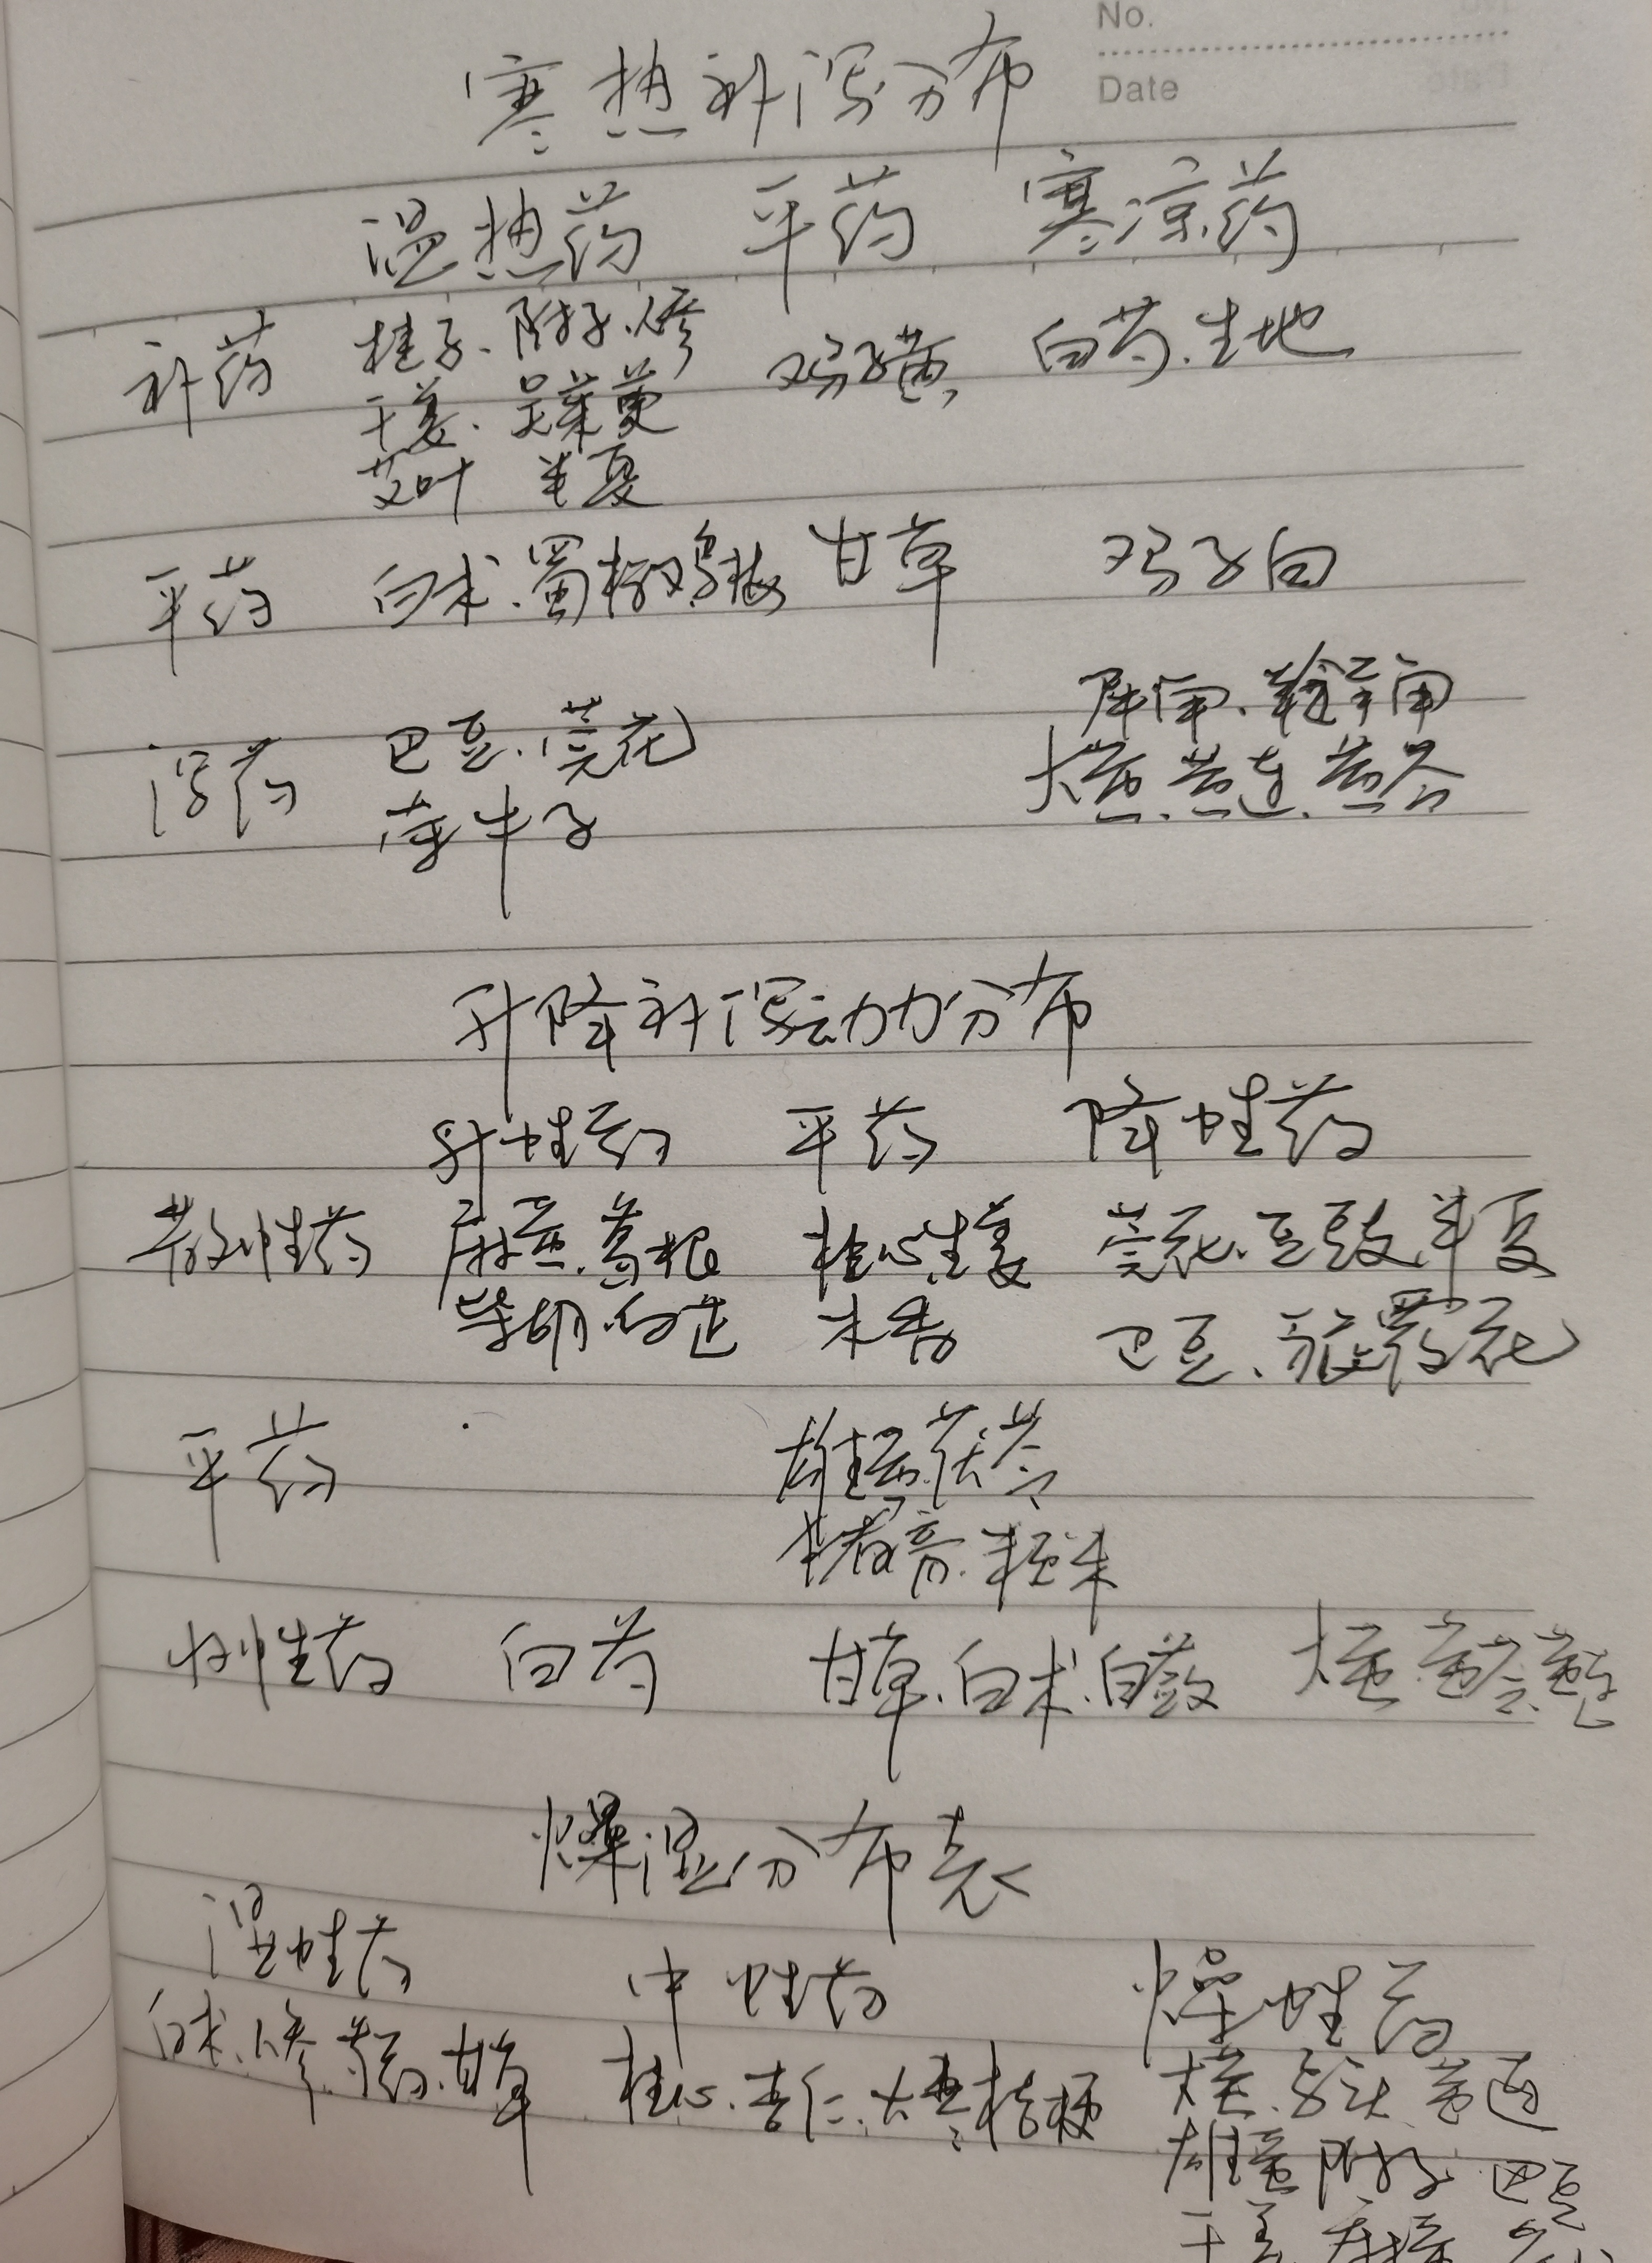 No.
Date
寒热补泻分布
温热药 平药 寒凉药
补药 桂子、附子、人参 鸡子黄 白芍、生地
干姜、吴茱萸
艾叶 半夏
平药 白术、蜀椒 乌梅 甘草 鸡子白
泻药 巴豆、芫花
牵牛子
大黄、黄连、黄芩
升降补泻动力分布
升性药 平药 降性药
散性药 麻黄、葛根 桂心、生姜 芫花、豆豉、半夏
柴胡、白芷 木香 巴豆、旋覆花
平药 雄黄、茯苓
粳米
收性药 白芍 甘草、白术、白蔹 大黄、黄芩、黄连
燥湿分布表
湿性药 中性药 燥性药
白术、人参、甘草 桂心、杏仁、大枣、桔梗 大黄 黄连
雄黄 附子 巴豆
干姜